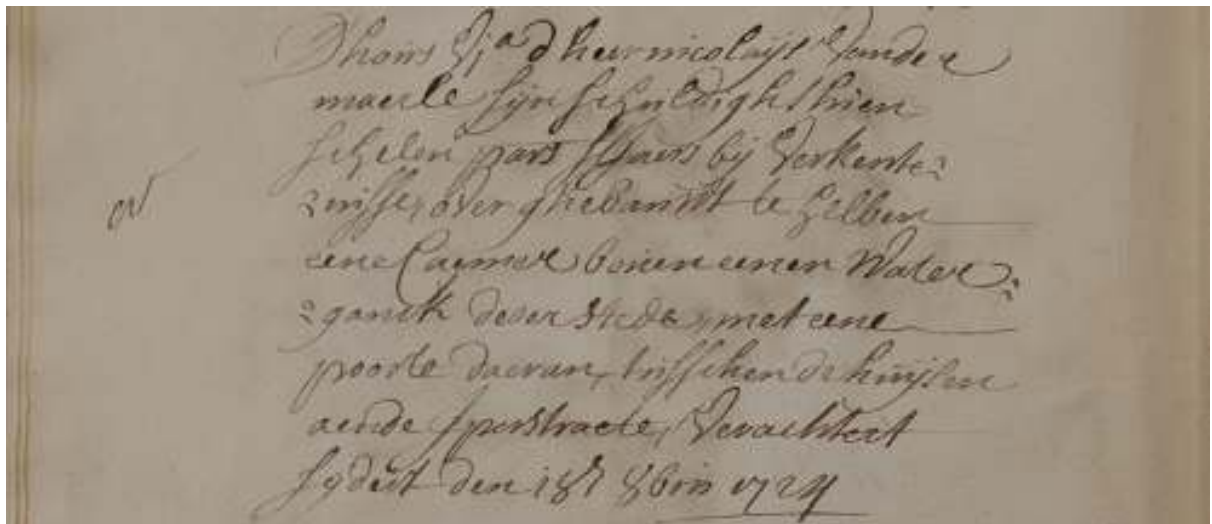 D'hoirs Jor d'heer nicolays vander
maerle sijn schuldigh thien
schelen pars sjaers bij verkente=
=nisse, over ghebandt te hebben
eene Caemer boven eenen Water=
=ganck deser stede, met eene
poorte daeran, tusschen de huijsen
aende sperstraete, verachtert
sydert den 18 8bris 1724